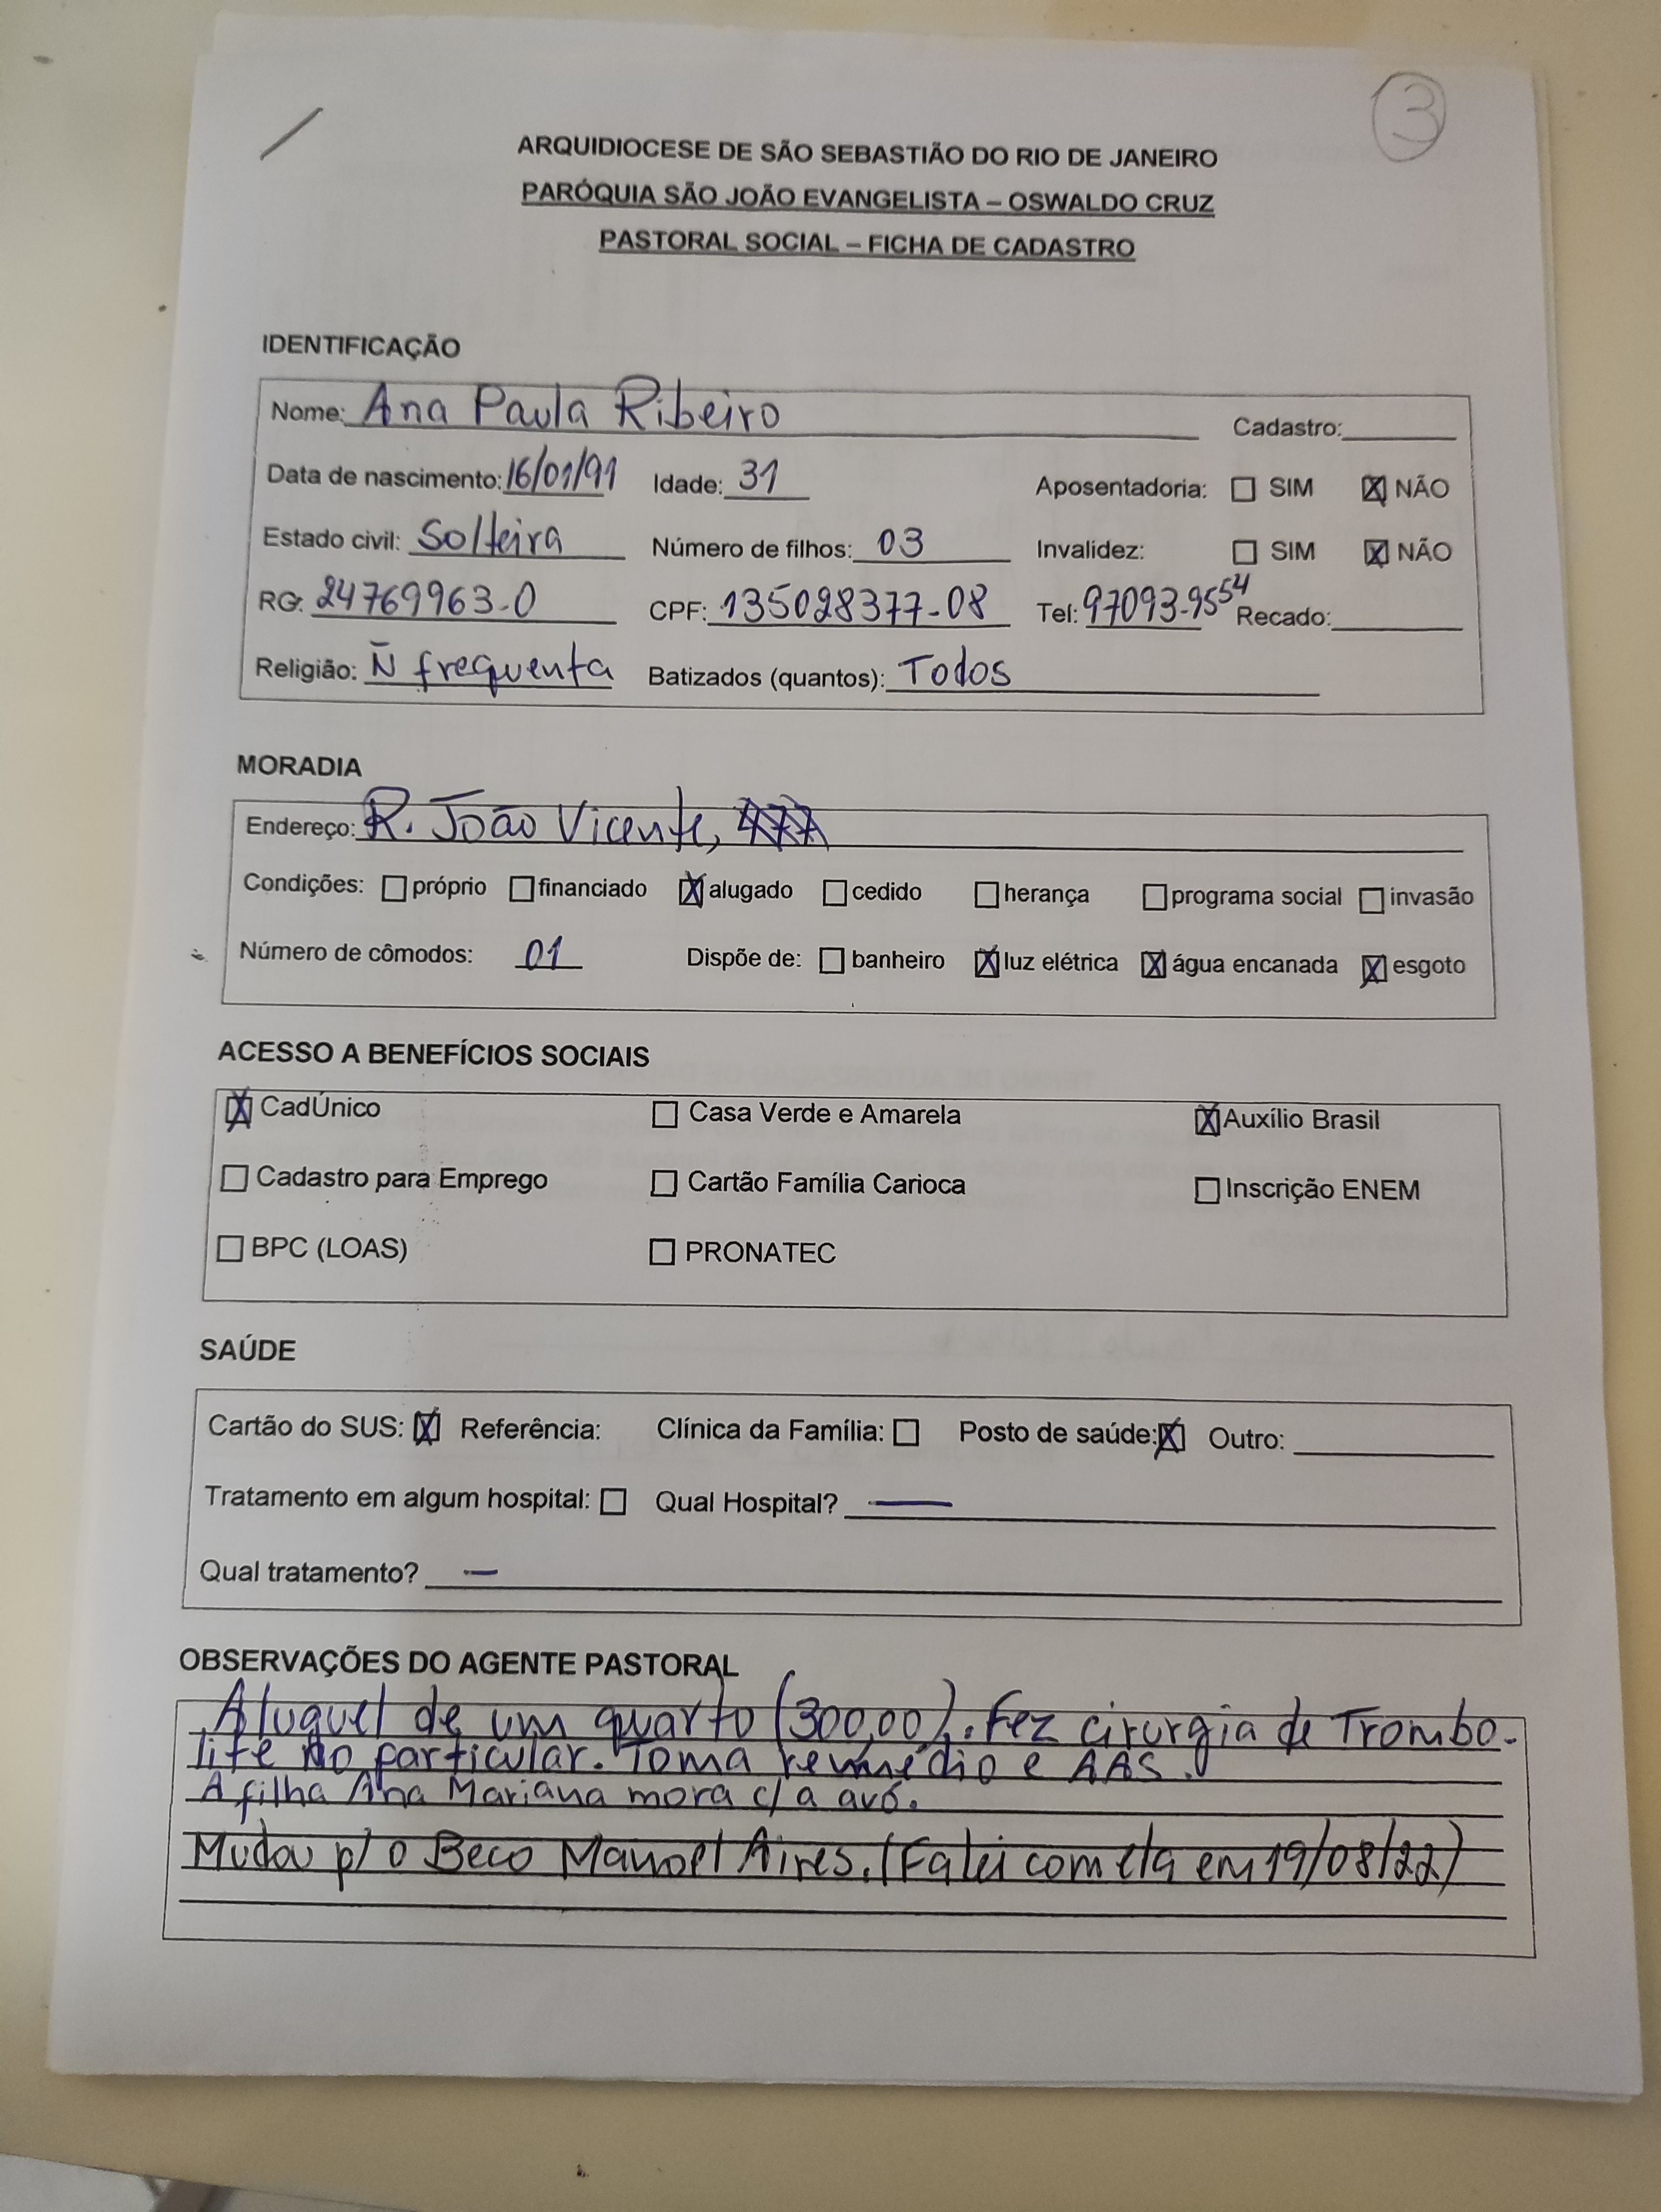 3
ARQUIDIOCESE DE SÃO SEBASTIÃO DO RIO DE JANEIRO
PARÓQUIA SÃO JOÃO EVANGELISTA – OSWALDO CRUZ
PASTORAL SOCIAL – FICHA DE CADASTRO
IDENTIFICAÇÃO
Nome: Ana Paula Ribeiro Cadastro:
Data de nascimento: 16/01/91 Idade: 31 Aposentadoria: ☐ SIM ☒ NÃO
Estado civil: Solteira Número de filhos: 03 Invalidez: ☐ SIM ☒ NÃO
RG: 24769963-0 CPF: 135028377-08 Tel: 97093-9554 Recado:
Religião: Ñ frequenta Batizados (quantos): Todos
MORADIA
Endereço: R. João Vicente,
Condições: ☐ próprio ☐ financiado ☒ alugado ☐ cedido ☐ herança ☐ programa social ☐ invasão
Número de cômodos: 01 Dispõe de: ☐ banheiro ☒ luz elétrica ☒ água encanada ☒ esgoto
ACESSO A BENEFÍCIOS SOCIAIS
☒ CadÚnico ☐ Casa Verde e Amarela ☒ Auxílio Brasil
☐ Cadastro para Emprego ☐ Cartão Família Carioca ☐ Inscrição ENEM
☐ BPC (LOAS) ☐ PRONATEC
SAÚDE
Cartão do SUS: ☒ Referência: Clínica da Família: ☐ Posto de saúde: ☒ Outro:
Tratamento em algum hospital: ☐ Qual Hospital? —
Qual tratamento? —
OBSERVAÇÕES DO AGENTE PASTORAL
Aluguel de um quarto (300,00). Fez cirurgia de Trombo-
life no particular. Toma remédio e AAS.
A filha Ana Mariana mora c/ a avó.
Mudou p/ o Beco Manoel Aires. (Falei com ela em 19/08/22)